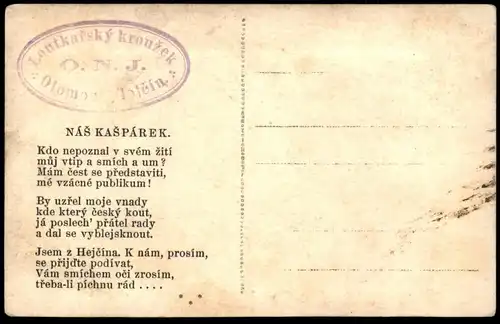 Loutkařský kroužek
O. N. J.
NÁŠ KAŠPÁREK.
Kdo nepoznal v svém žití
můj vtip a smích a um?
Mám čest se představiti,
mé vzácné publikum!
By uzřel moje vnady
kde který český kout,
já poslech' přátel rady
a dal se vyblejsknout.
Jsem z Hejčína. K nám, prosím,
se přijďte podívat,
Vám smíchem oči zrosím,
třeba-li píchnu rád ....